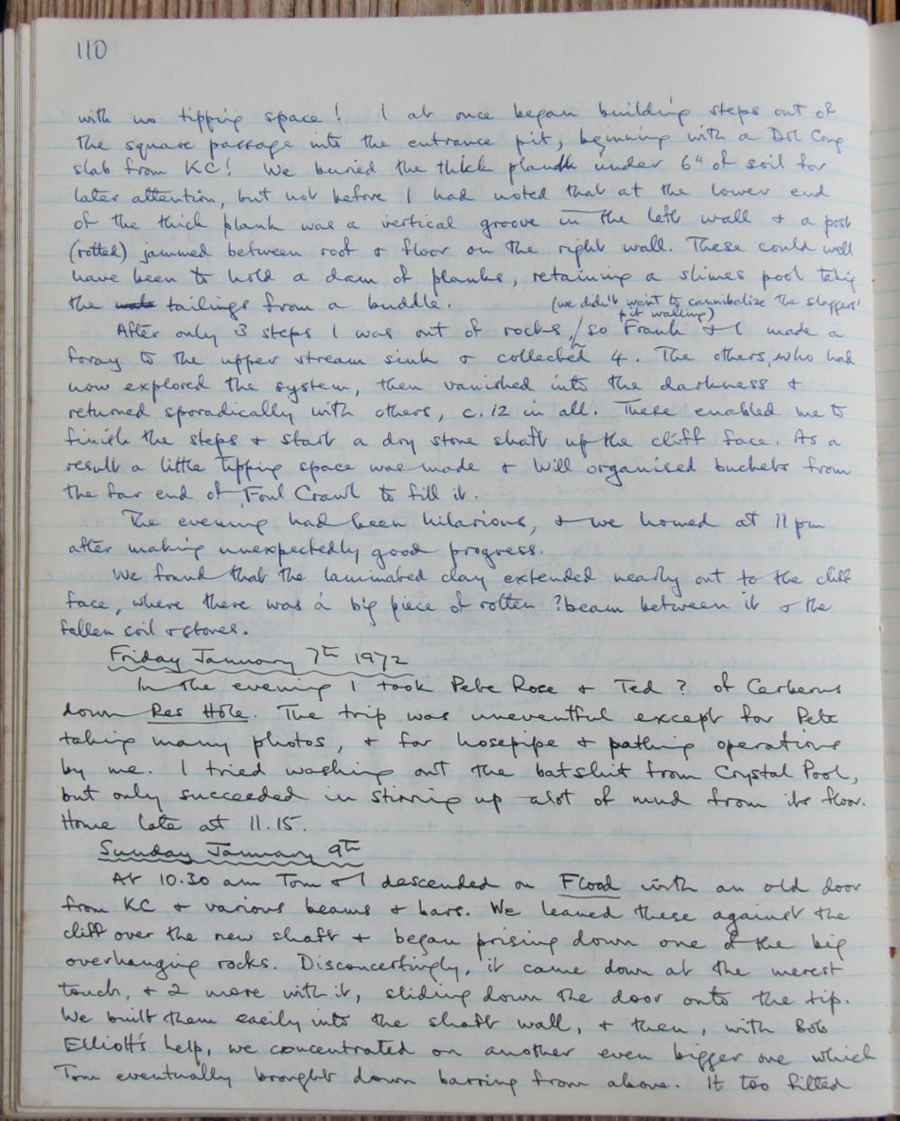 110
with no tipping space! I at once began building steps out of
the square passage into the entrance pit, beginning with a Dol Cong
slab from KC! We buried the thick plank under 6" of soil for
later attention, but not before I had noted that at the lower end
of the thick plank was a vertical groove in the left wall & a post
(rotted) jammed between roof & floor on the right wall. These could well
have been to hold a dam of planks, retaining a slimes pool taking
the tailings from a buddle. (we didn't want to cannibalize the sloggers'
pit walling)
After only 3 steps I was out of rocks, so Frank & I made a
foray to the upper stream sink & collected 4. The others, who had
now explored the system, then vanished into the darkness &
returned sporadically with others, c. 12 in all. These enabled me to
finish the steps & start a dry stone shaft up the cliff face. As a
result a little tipping space was made & Will organised buckets from
the far end of Foul Crawl to fill it.
The evening had been hilarious, & we homed at 11 pm
after making unexpectedly good progress.
We found that the laminated clay extended nearly out to the cliff
face, where there was a big piece of rotten ?beam between it & the
fallen soil & stones.
Friday January 7th 1972
In the evening I took Pete Rose & Ted ? of Cerberus
down Res Hole. The trip was uneventful except for Pete
taking many photos, & for hosepipe & pathing operations
by me. I tried washing out the batshit from Crystal Pool,
but only succeeded in stirring up alot of mud from its floor.
Home late at 11.15.
Sunday January 9th
At 10.30 am Tom & I descended on Flood with an old door
from KC & various beams & bars. We leaned these against the
cliff over the new shaft & began prising down one of the big
overhanging rocks. Disconcertingly, it came down at the merest
touch, & 2 more with it, sliding down the door onto the tip.
We built them easily into the shaft wall, & then, with Bob
Elliott's help, we concentrated on another even bigger one which
Tom eventually brought down barring from above. It too filled